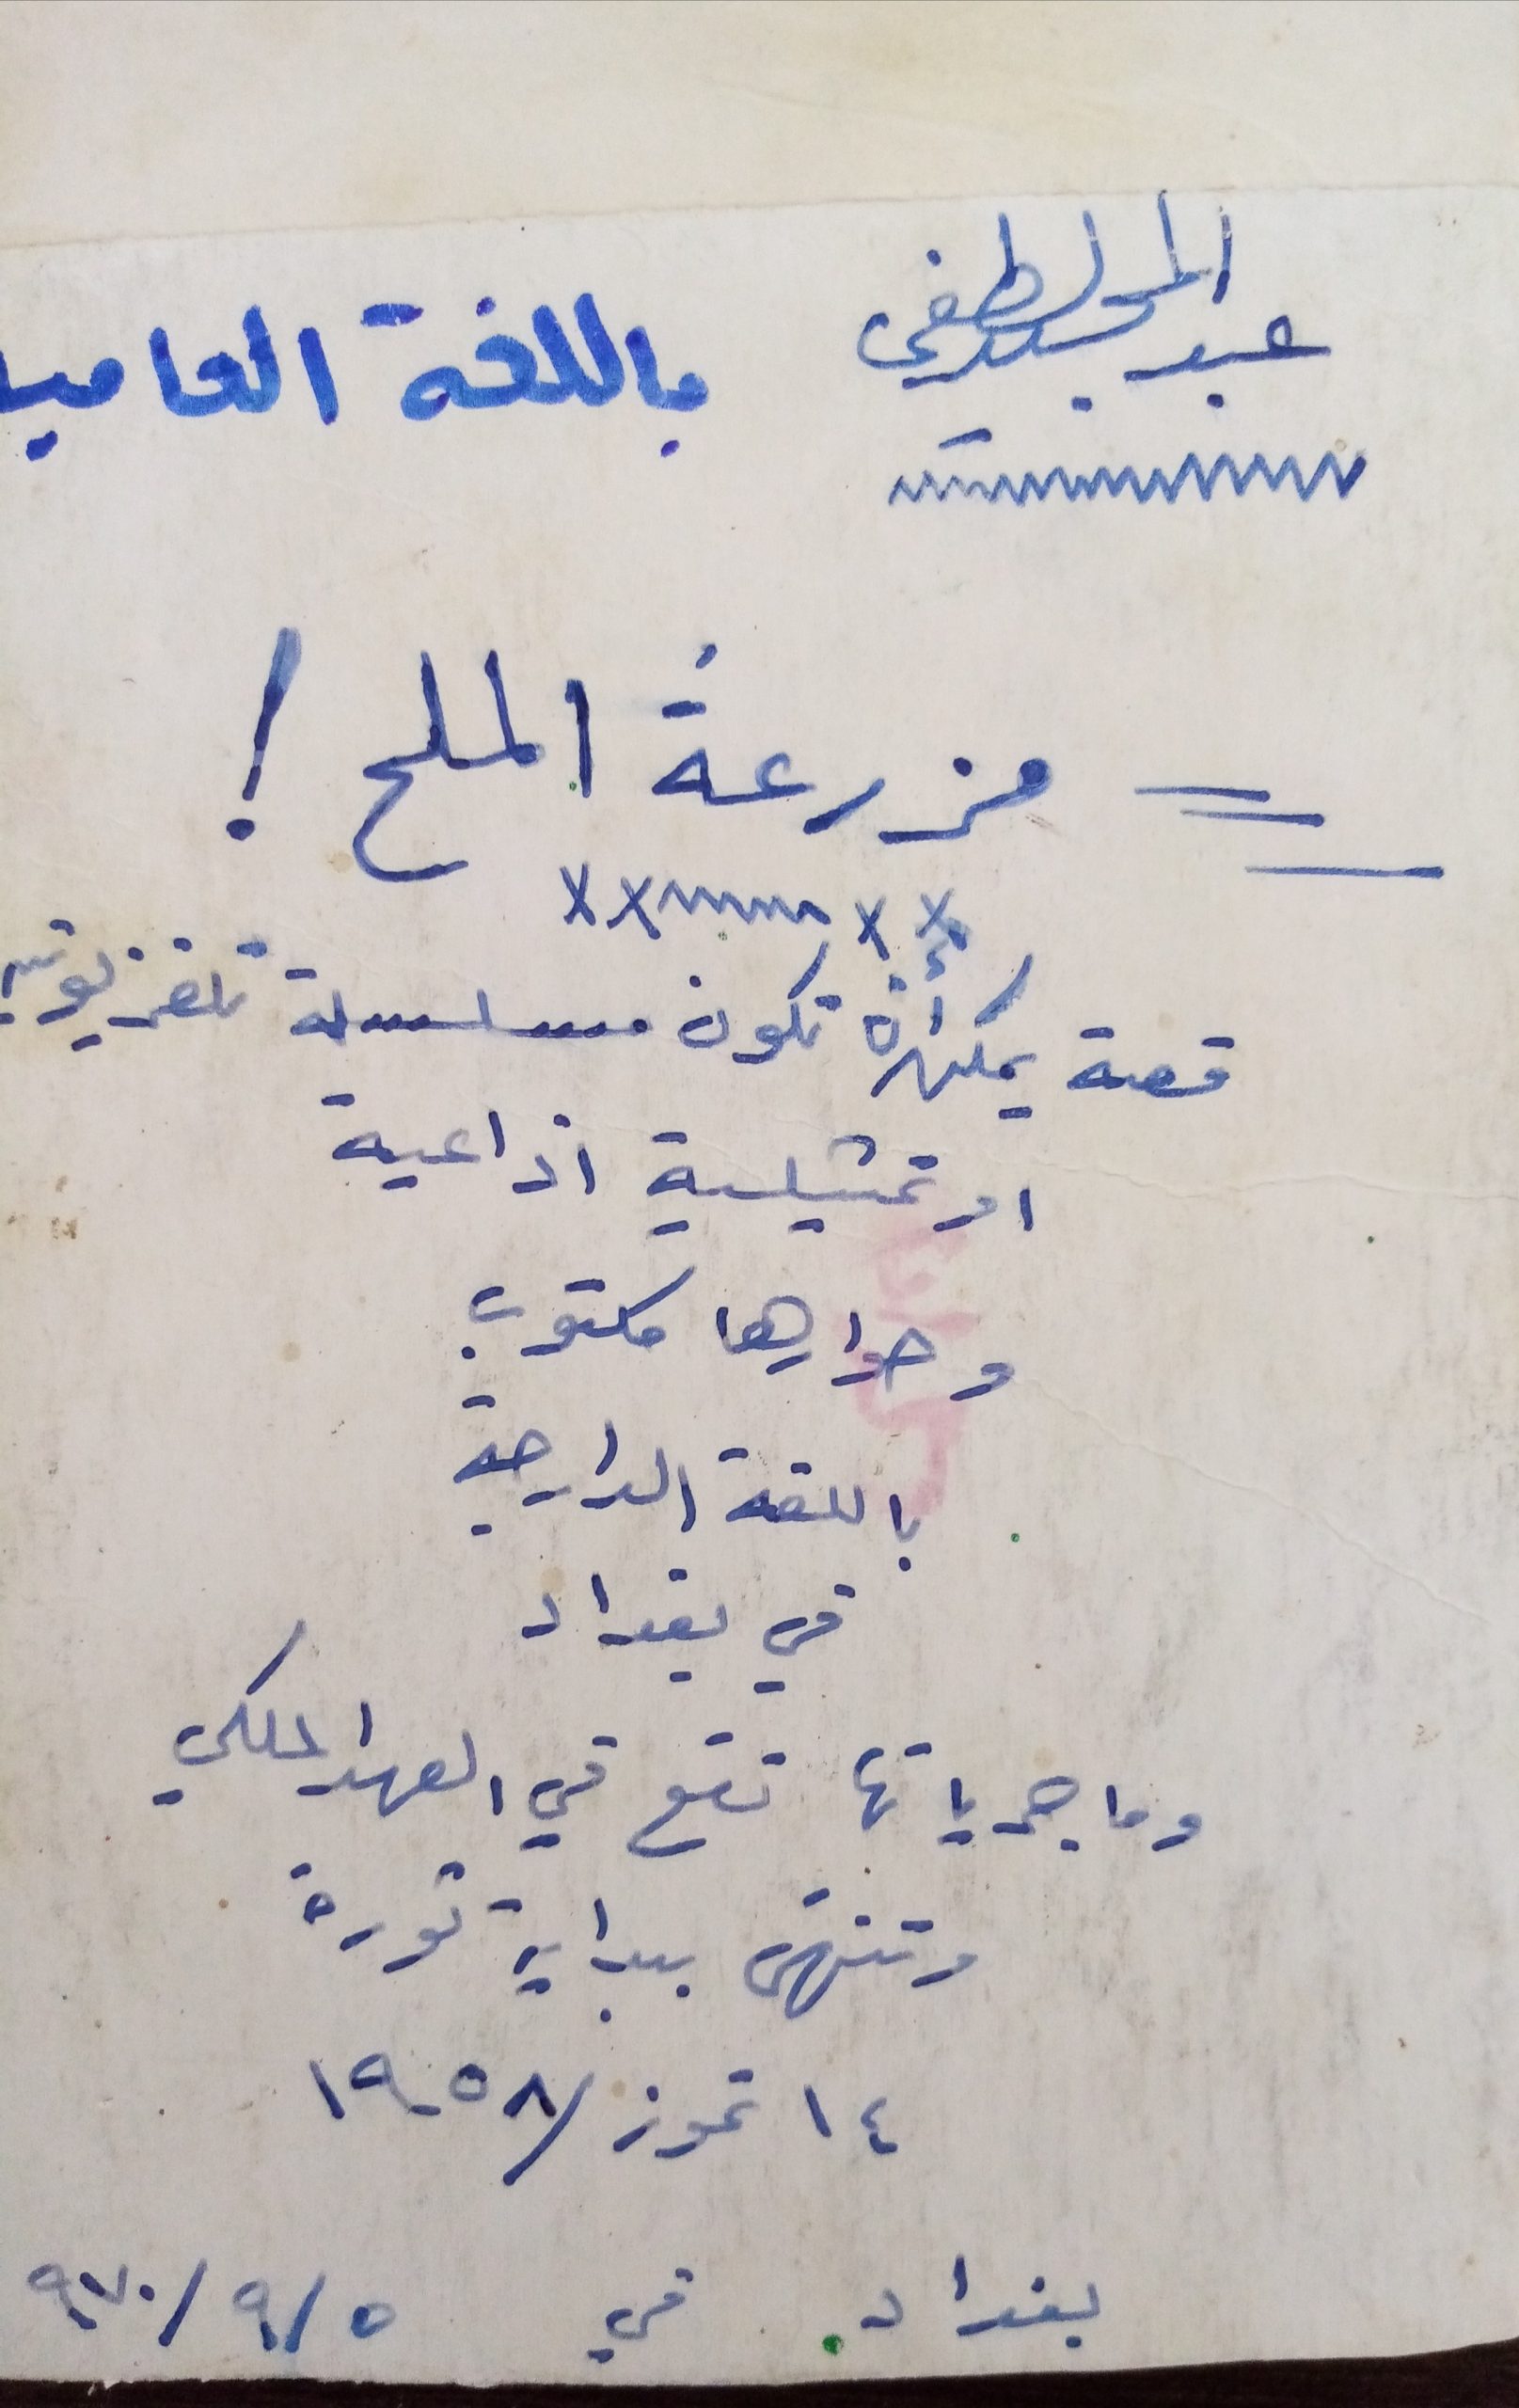 عبد المجيد لطفي
باللغة العامية
مزرعة الملح !
قصة يمكن أن تكون مسلسلة تلفزيونية
او تمثيلية اذاعية
وحوارها مكتوب
باللغة الدارجة
في بغداد
وماجرياتها تقع في العهد الملكي
وتنتهي ببداية ثورة
١٤ تموز/١٩٥٨
بغداد في ٥/٩/٩٧٠